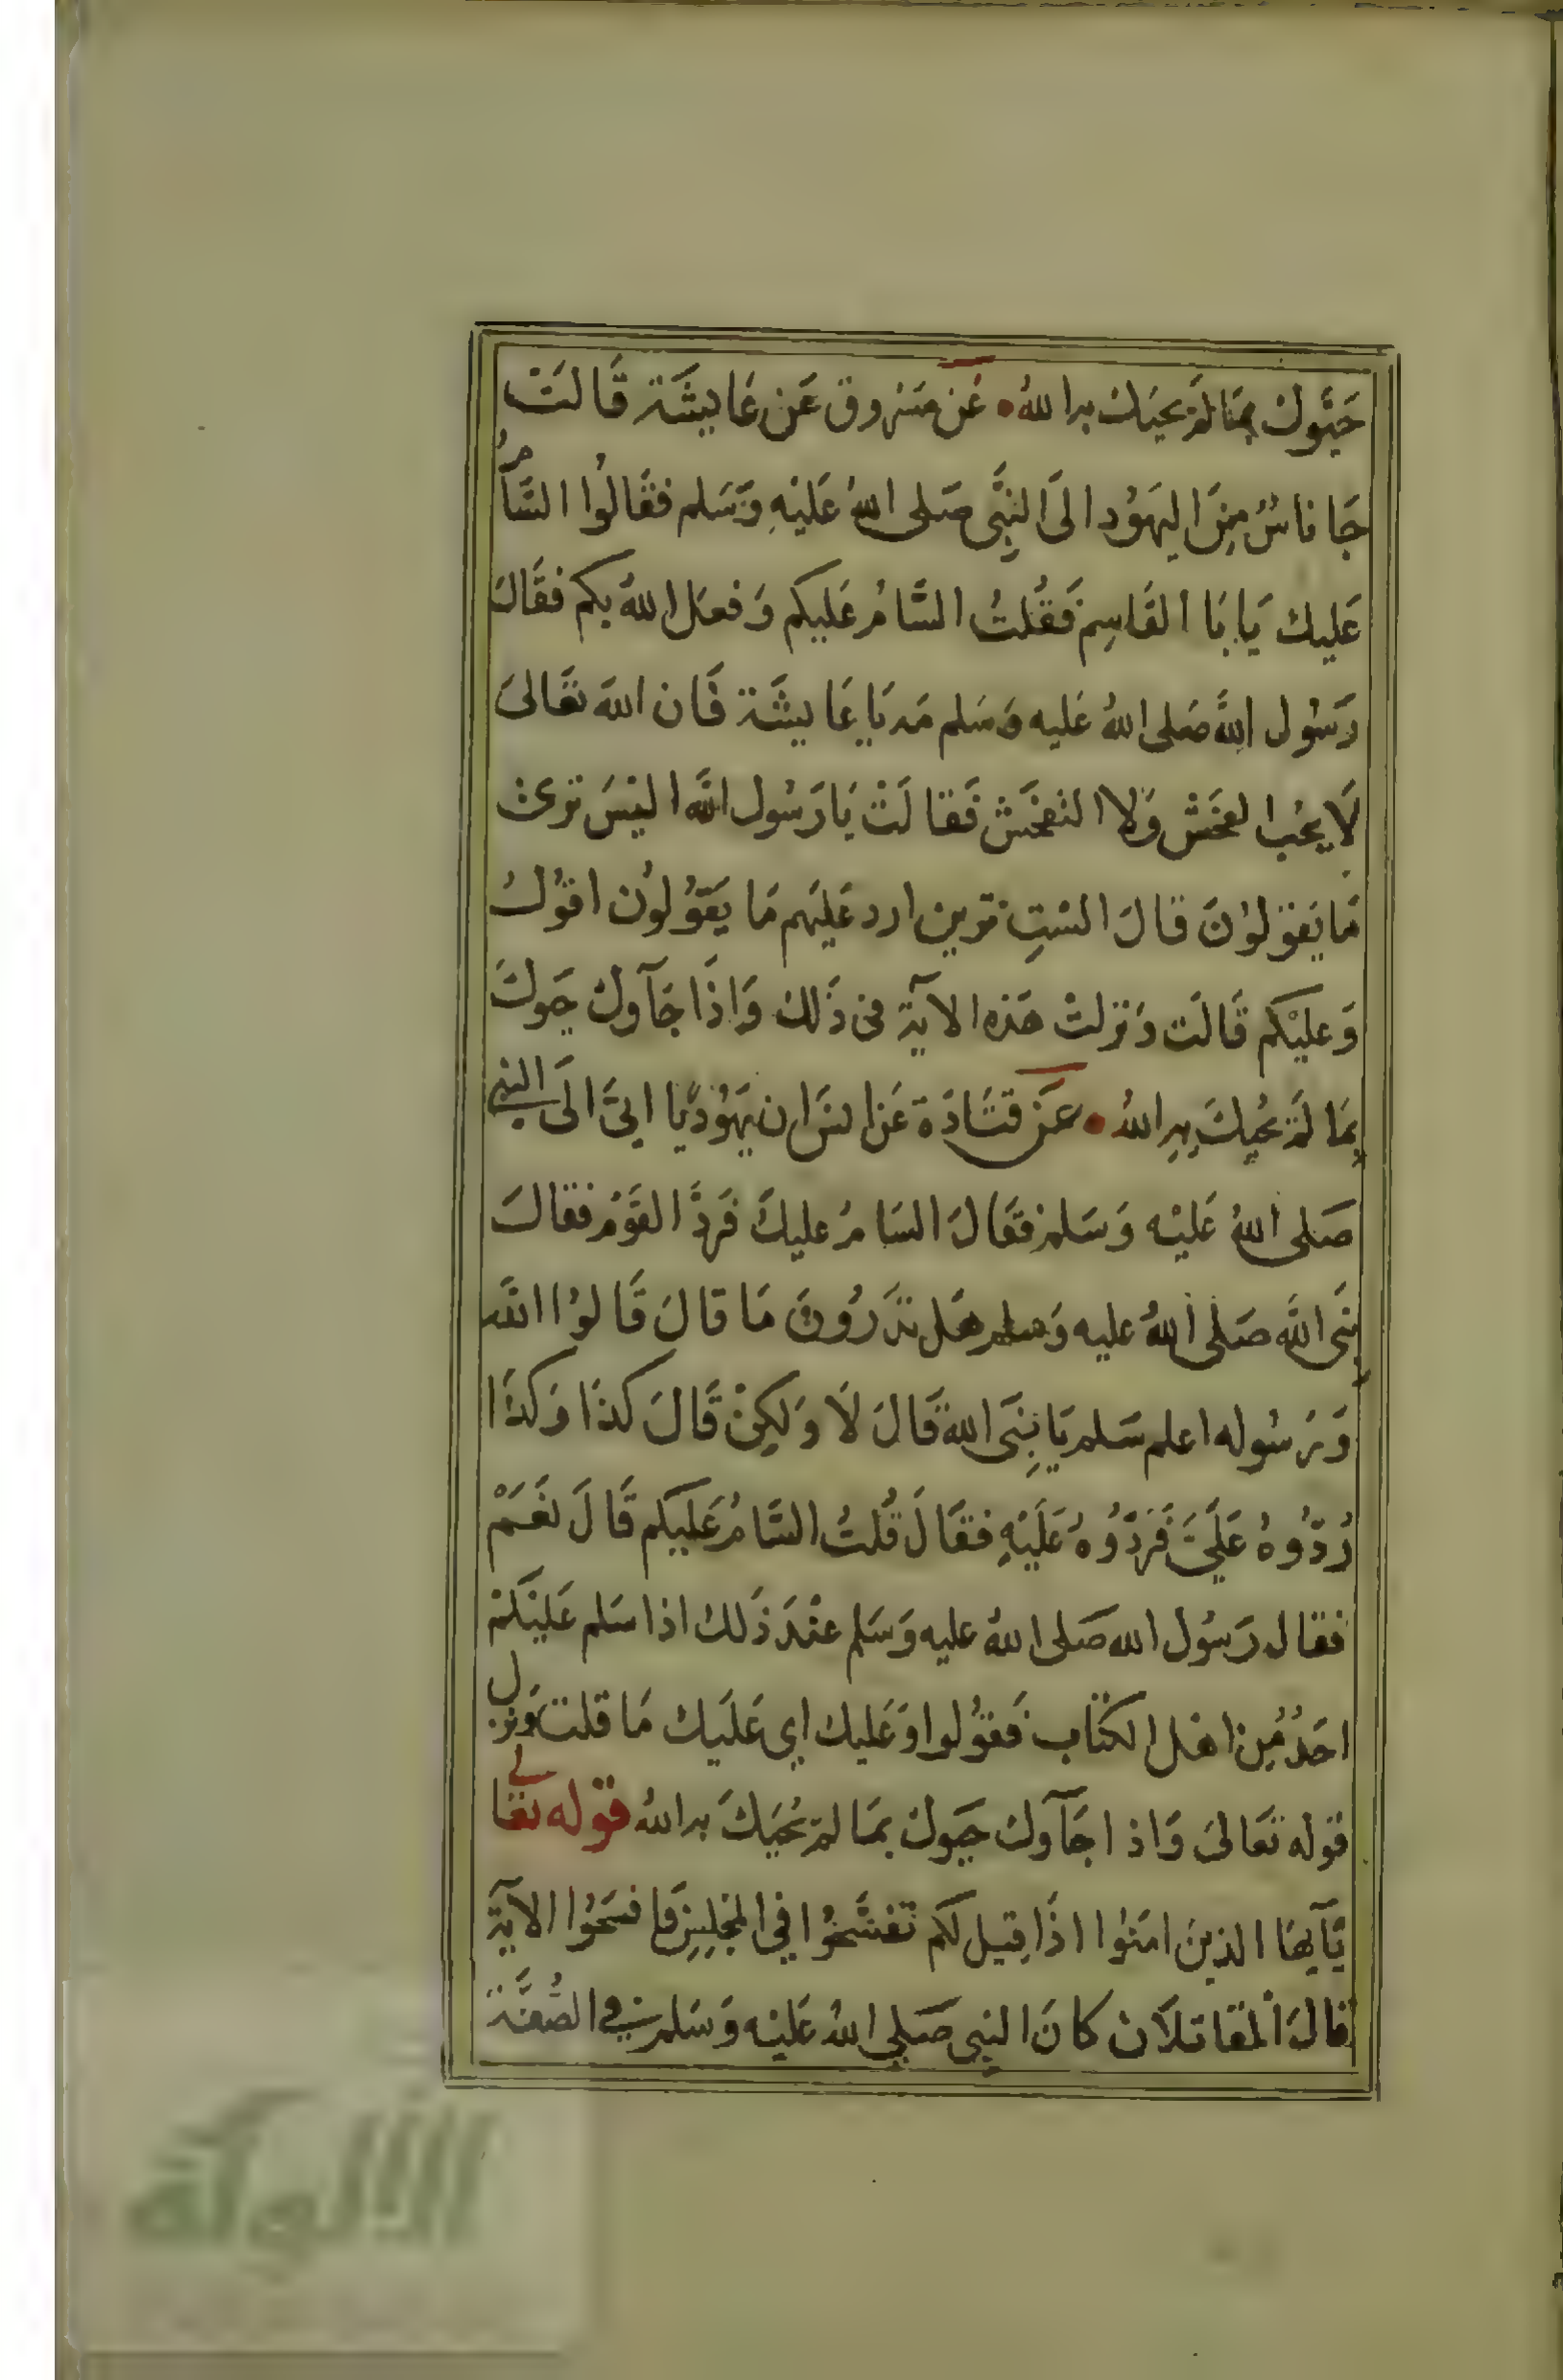 حَيَّوك بمَا لَمْ يحيك به اللهُ • عَن مَسْروق عَن عَايشَة قَالَتْ
جَا ناسٌ مِنَ اليَهُود الَى النِبَّي صَلى اللهُ عَليْهِ وَسَلم فقَالُوا السَّامُ
عَليك يَابَا القَاسِم فَقُلتُ السَّامُ عَليكم وَفعَل اللهُ بكم فقَالَ
رَسُول اللهَّ صَلى اللهُ عَليه وَسَلم مَه يَا عَايشَة فَان اللهَ تعَالىَ
لَا يحُب الفحَشْ وَلا التفحَش فَقالَتْ يَا رَسُول اللهَّ اليسَ ترىَ
مَا يَقوْلوْنَ قالَ السْتِ ترين ارد عَليَهم مَا يَقوُلُون اقوُلُ
وَعليْكم قَالَت وَنزلتْ هَذه الآية فى ذَلك وَاذَا جَآوك حيوكَ
بمَا لَمْ يحُيكَ بهِ اللهُ • عَن قتَادَة عَن انسَ ان يَهوُديًّا اتىَ الَى النبي
صَلى اللهُ عَليْه وَسَلم فقَالَ السَامُ عليكَ فَردَّ القَوْم فقالَ
نِبَى اللهَ صَلى اللهُ عليه وَسلم هَل تدَرُونَ مَا قالَ قَالوُا اللهَ
وَرَسُوله اعلم سَلم يَا نِبَى اللهَ قَالَ لَا وَلكِنْ قَالَ كذَا وَكذَا
رُدّوُهُ عَلَيَّ فَردّوُهُ عَليَهِ فقَالَ قُلتُ السَّامُ عَليكم قَالَ نَعَمْ
فقال رَسُول الله صَلى اللهُ عليه وَسَلم عنْدَ ذَلك اذا سَلم عَليْكمْ
احَدٌ مُن اهَل الكتَاب فَقوُلوا وَعَليك اي عَلَيك مَا قلت وَنزل
قوله تعَالىَ وَاذا جَآوك حيوك بمَا لم يحُيَكَ به اللهُ قوله تعَالى
يَآيهَا الذينَ امَنوا اذَا قِيل لكم تَفسَّحُوا في المجْلِسِ فَافسَحُوا الآية
قالَ المقاتلَان كانَ النبي صَلى اللهُ عَليْه وَسَلم في الصُفَّة
الألوكة